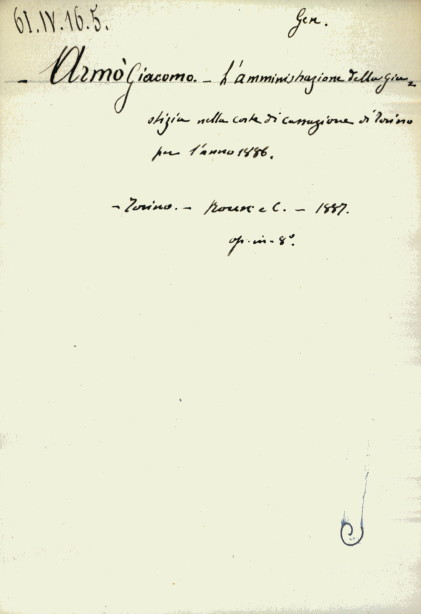 61.IV.16.5.
Gen.
- Armò Giacomo. - L'amministrazione della giu-
stizia nella corte di cassazione di Torino
per l'anno 1886.
- Torino. - Roux e C. - 1887.
op. in-8°.